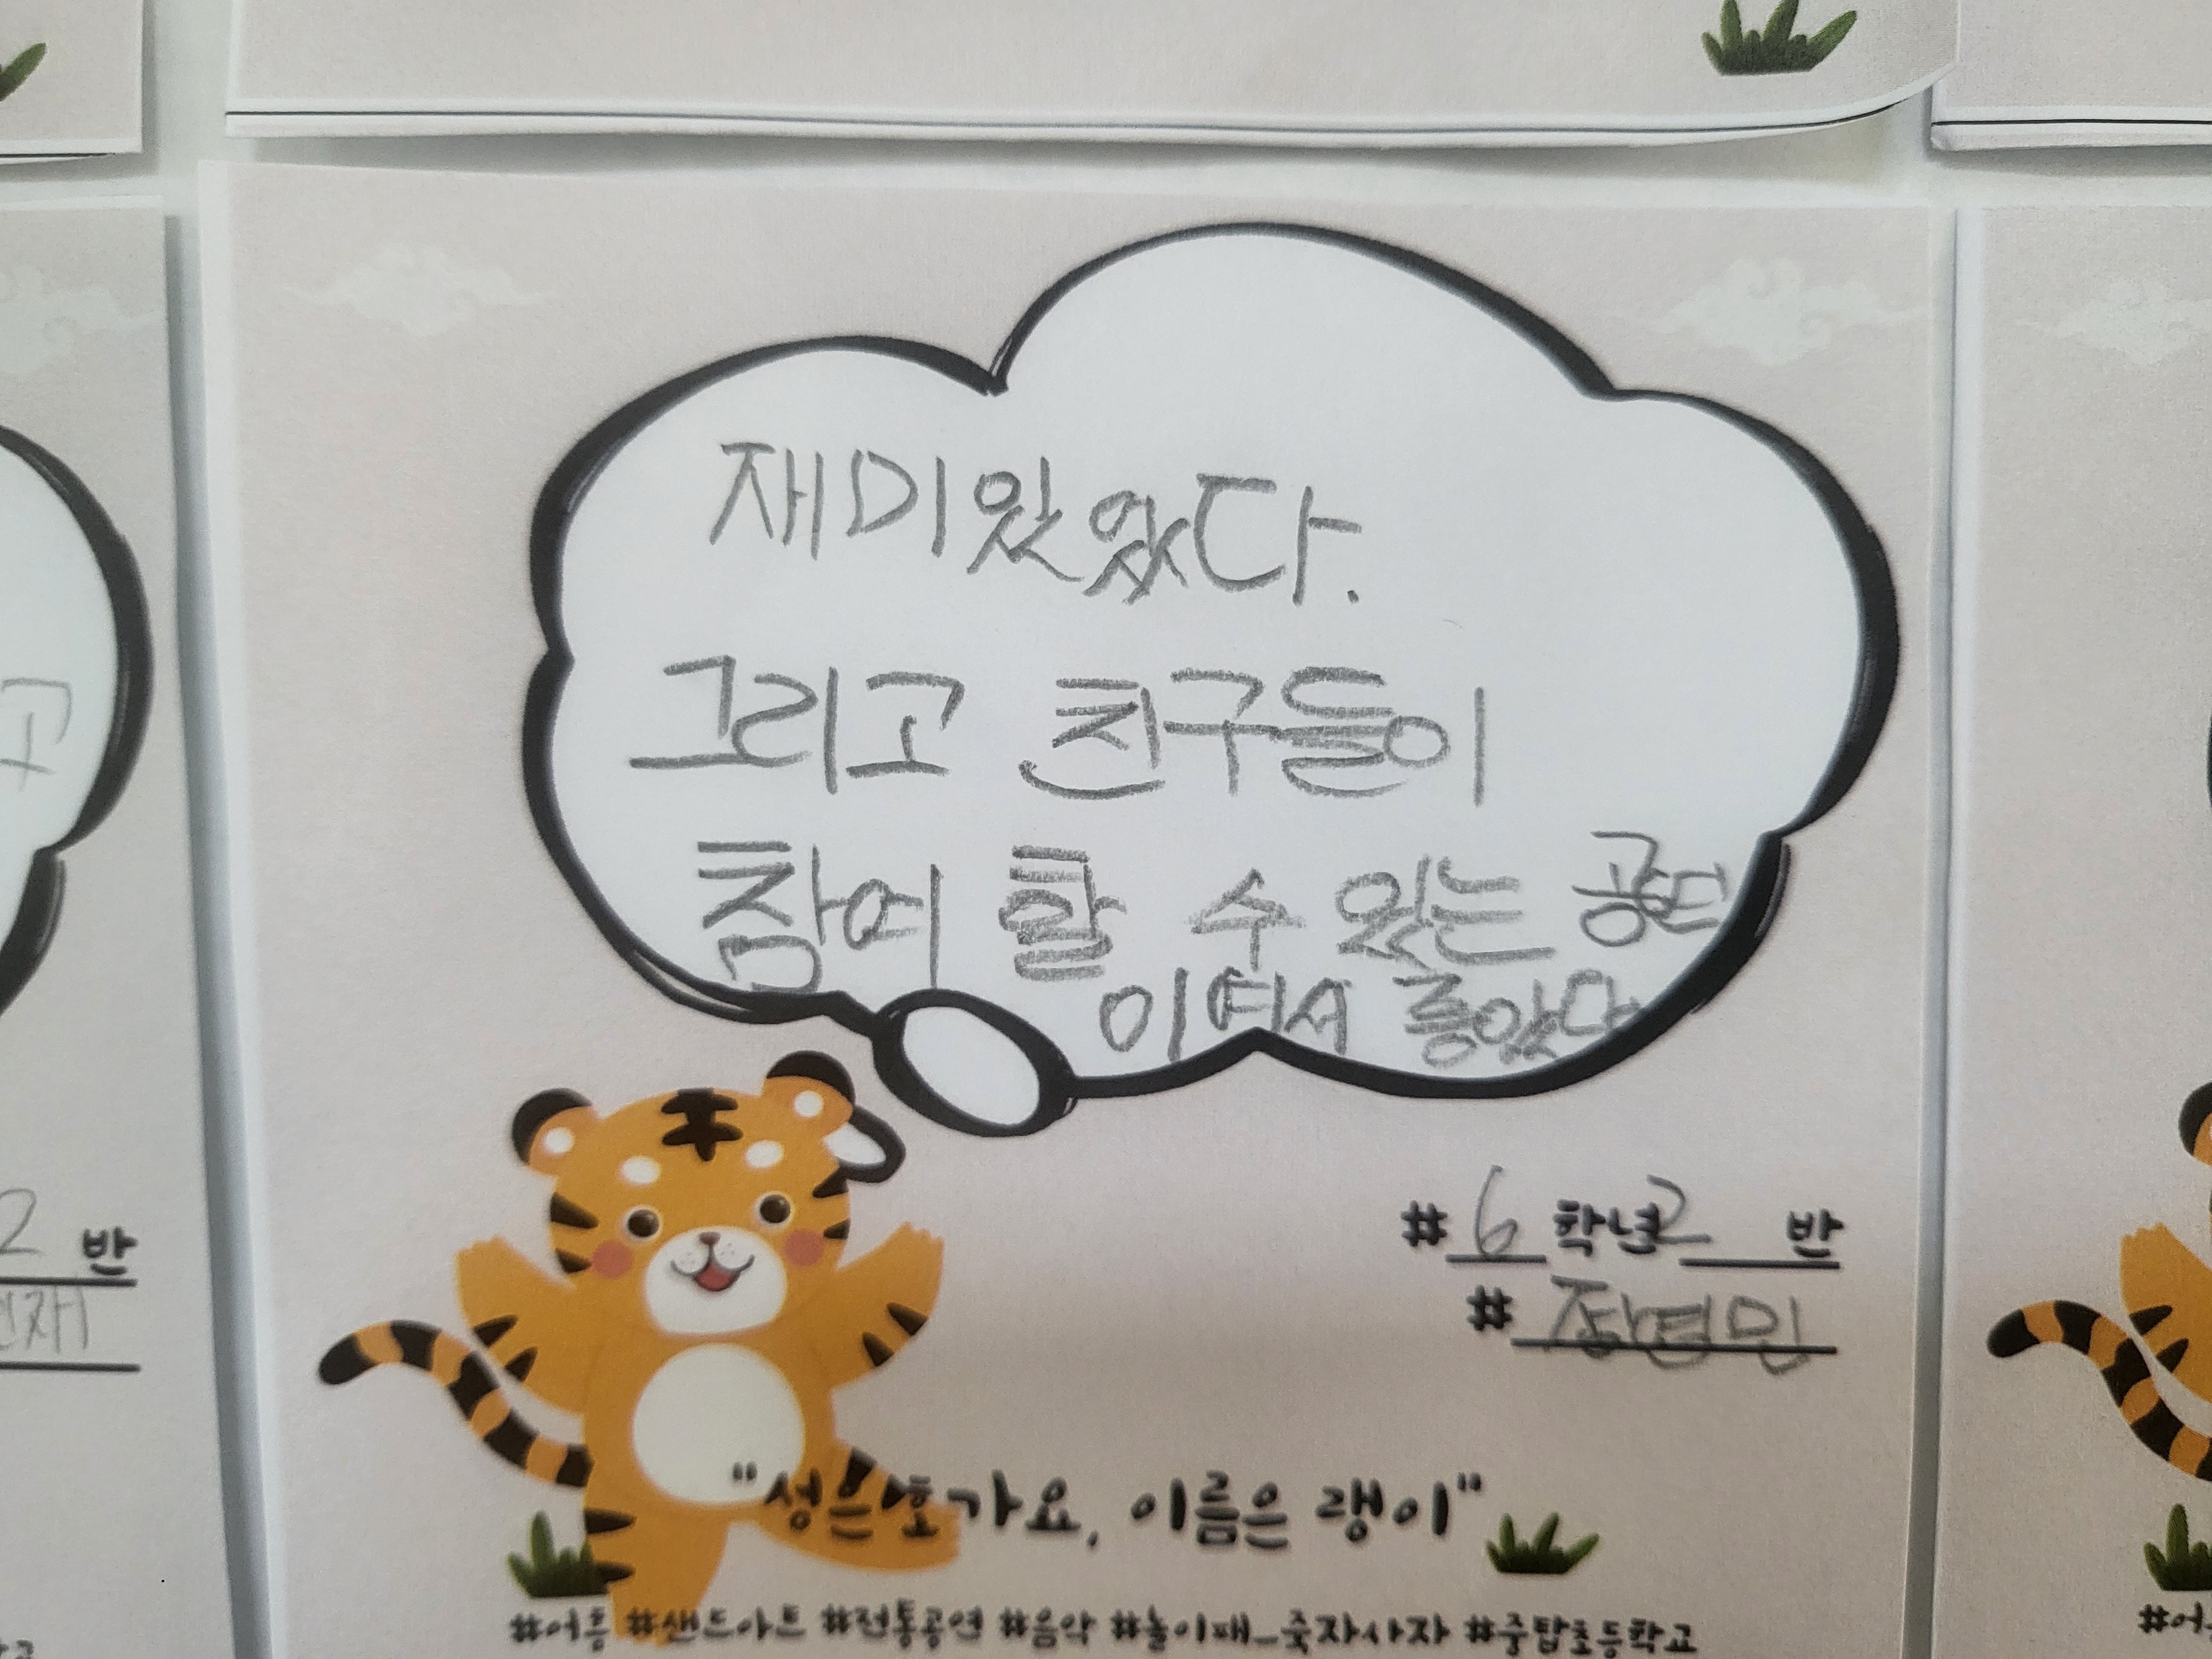 재미있었다.
그리고 친구들이
참여 할 수 있는
이여서 좋았다
#6학년2 반
#
"성은 호가요, 이름은 랭이"
#어흥 #샌드아트 #전통공연 #음악 #놀이패_죽자사자 #중탑초등학교
고
2 반